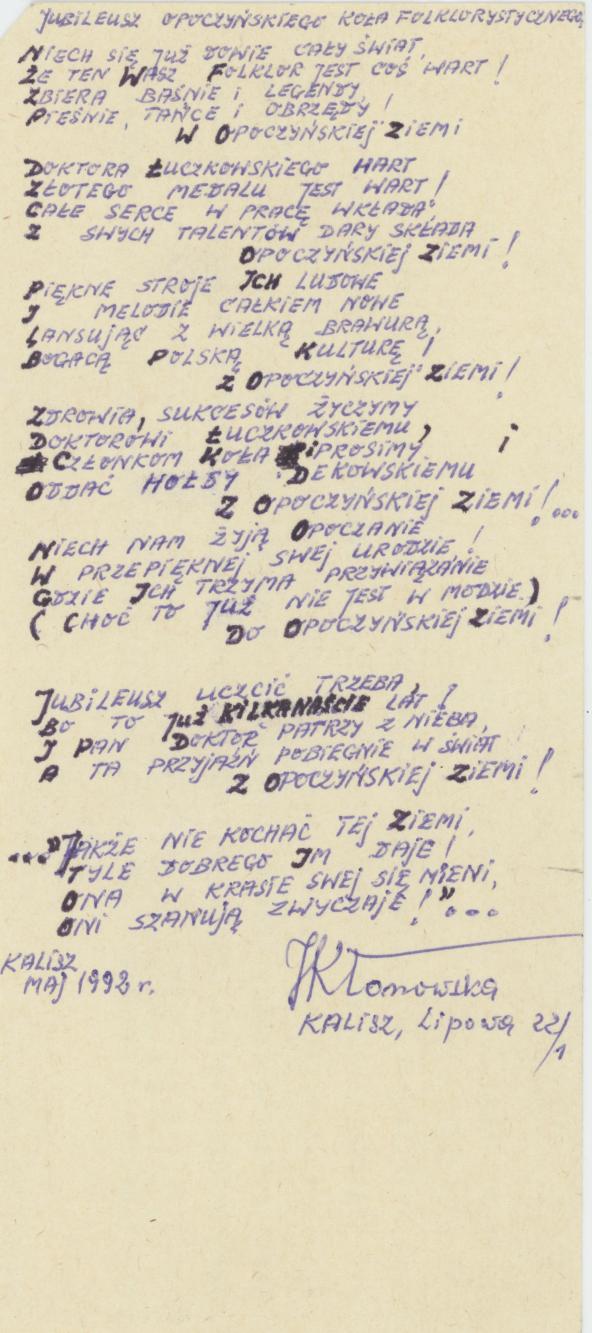 JUBILEUSZ OPOCZYŃSKIEGO KOŁA FOLKLORYSTYCZNEGO
NIECH SIĘ JUŻ DOWIE CAŁY ŚWIAT,
ŻE TEN WASZ FOLKLOR JEST COŚ WART!
ZBIERA BAŚNIE I LEGENDY,
PIEŚNIE, TAŃCE I OBRZĘDY!
W OPOCZYŃSKIEJ ZIEMI
DOKTORA ŁUCZKOWSKIEGO HART
ZŁOTEGO MEDALU JEST WART!
CAŁE SERCE W PRACĘ WKŁADA
Z SWYCH TALENTÓW DARY SKŁADA
OPOCZYŃSKIEJ ZIEMI!
PIĘKNE STROJE ICH LUDOWE
I MELODIE CAŁKIEM NOWE
LANSUJĄC Z WIELKĄ BRAWURĄ,
BOGACĄ POLSKĄ KULTURĘ!
Z OPOCZYŃSKIEJ ZIEMI!
ZDROWIA, SUKCESÓW ŻYCZYMY
DOKTOROWI ŁUCZKOWSKIEMU, i
CZŁONKOM KOŁA I PROSIMY
ODDAĆ HOŁDY DEKOWSKIEMU
Z OPOCZYŃSKIEJ ZIEMI!...
NIECH NAM ŻYJĄ OPOCZANIE
W PRZEPIĘKNEJ SWEJ URODZIE!
GDZIE ICH TRZYMA PRZYWIĄZANIE
(CHOĆ TO JUŻ NIE JEST W MODZIE)
DO OPOCZYŃSKIEJ ZIEMI!
JUBILEUSZ UCZCIĆ TRZEBA,
BO TO JUŻ KILKANAŚCIE LAT!
I PAN DOKTOR PATRZY Z NIEBA,
A TA PRZYJAŹŃ POBIEGNIE W ŚWIAT
Z OPOCZYŃSKIEJ ZIEMI!
..."JAKŻE NIE KOCHAĆ TEJ ZIEMI,
TYLE DOBREGO IM DAJE!
ONA W KRASIE SWEJ SIĘ MIENI,
ONI SZANUJĄ ZWYCZAJE!"...
KALISZ
MAJ 1992 r.
JKłonowska
KALISZ, Lipowa 22/1